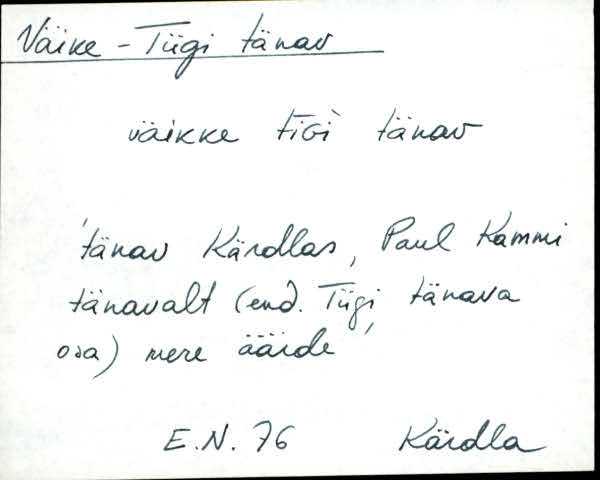 Väike-Tiigi tänav
väikke tiGi` tänav
'tänav Kärdlas, Paul Kammi
tänavalt (end. Tiigi tänava
osa) mere äärde'
E.N. 76 Kärdla